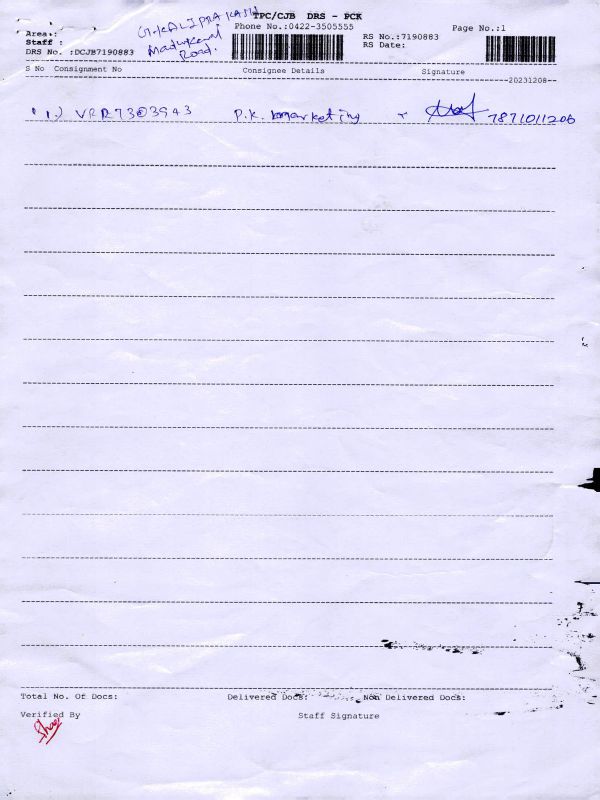 TPC/CJB DRS - PCK
G.KALIPRAKASH
Phone No.:0422-3505555
Page No.:1
Area :
Staff :
Madukarai
Road.
RS No.:7190883
RS Date:
DRS No. :DCJB7190883
S No Consignment No Consignee Details Signature
--20231208--
1.) VRR7303943 P.K. Marketing 7871011206
Total No. Of Docs: Delivered Docs: Non Delivered Docs:
Verified By Staff Signature